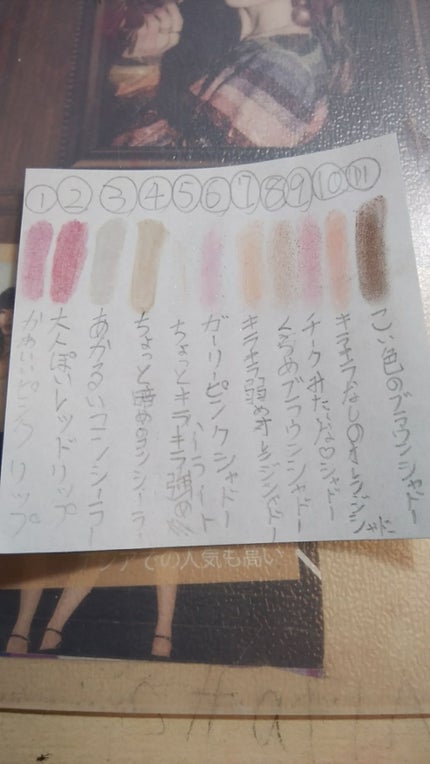 ① ② ③ ④ ⑤ ⑥ ⑦ ⑧ ⑨ ⑩ ⑪
かわいいピンクリップ
大人ぽいレッドリップ
あかるいコンシーラー
ちょっと暗めのコンシーラー
ちょっとキラキラ強めの
ハイライト
ガーリーピンクシャドー
キラキラ弱めオレンジシャドー
くらめブラウンシャドー
チークみたいな♡シャドー
キラキラなしのオレンジシャドー
こい色のブラウンシャドー